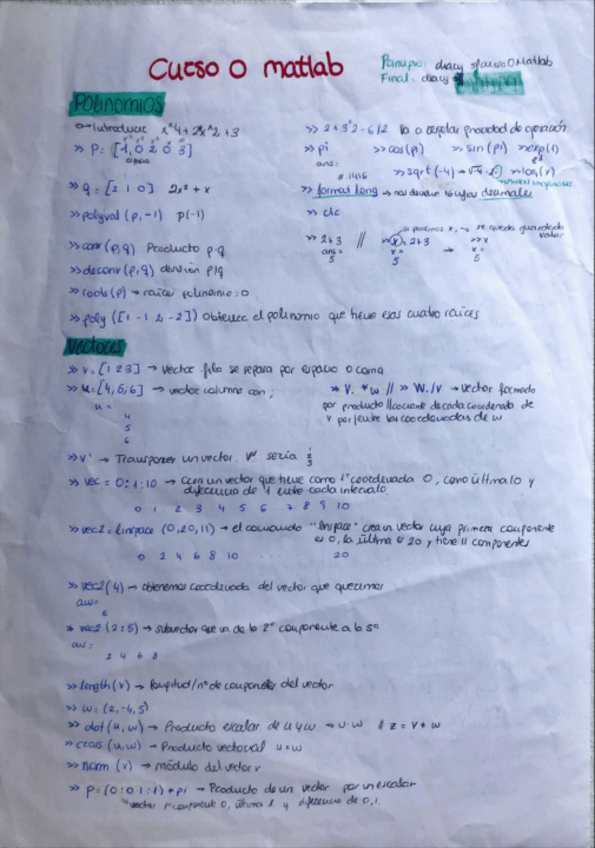 Curso 0 matlab
Parcipo: diary
Final: diary
POLINOMIOS
Introducir x^4+2x^2+3
>> P=[1,0 2 0 3]
espacio
>> q = [2 1 0] 2x²+x
>> polyval (p,-1) p(-1)
>> conv(p,q) Producto p·q
>> deconv(p,q) división p/q
>> roots(p) → raíces polinomio=0
>> poly ([1 -1 2 -2]) Obtener el polinomio que tiene esas cuatro raíces
>> 2+3^2-6/2 Va a respetar prioridad de operación
>> pi >> cos(pi) >> sin(pi) >> exp(1)
ans:
.1416 >> sqrt(-4) → √-4
>> format long → nos devuelve 16 cifras decimales
>> clc
si ponemos x, → se queda guardado valor
>> 2+3 // >> x=2+3 → >> x
ans= x= x=
5 5 5
Vectores
>> v=[1 2 3] → Vector fila se separa por espacio o coma
>> u=[4;5;6] → vector columna con ;
u =
4
5
6
>> v.*w // >> w./v → vector formado
por producto//cociente de cada coordenada de
v por/entre las coordenadas de w.
>> v' → Transponer un vector. v' sería 1
2
3
>> vec = 0:1:10 → Crea un vector que tiene como 1ª coordenada 0, como última 10 y
diferencia de 1 entre cada intervalo
0 1 2 3 4 5 6 7 8 9 10
>> vec2=linspace (0,20,11) → el comando "linspace" crea un vector cuya primera componente
es 0, la última es 20 y tiene 11 componentes
0 2 4 6 8 10 ... 20
>> vec2(4) → obtenemos coordenada del vector que queremos
ans=
6
>> vec2(2:5) → subvector que va de la 2ª componente a la 5ª
ans:
2 4 6 8
>> length(v) → longitud/nº de componentes del vector
>> w=(2,-4,5)
>> dot(u,w) → Producto escalar de u y w → u·w // z = v*w
>> cross(u,w) → Producto vectorial u*w
>> norm (v) → módulo del vector v
>> P=(0:0.1:1)*pi → Producto de un vector por un escalar
vector 1ª componente 0, última 1 y diferencia de 0,1.